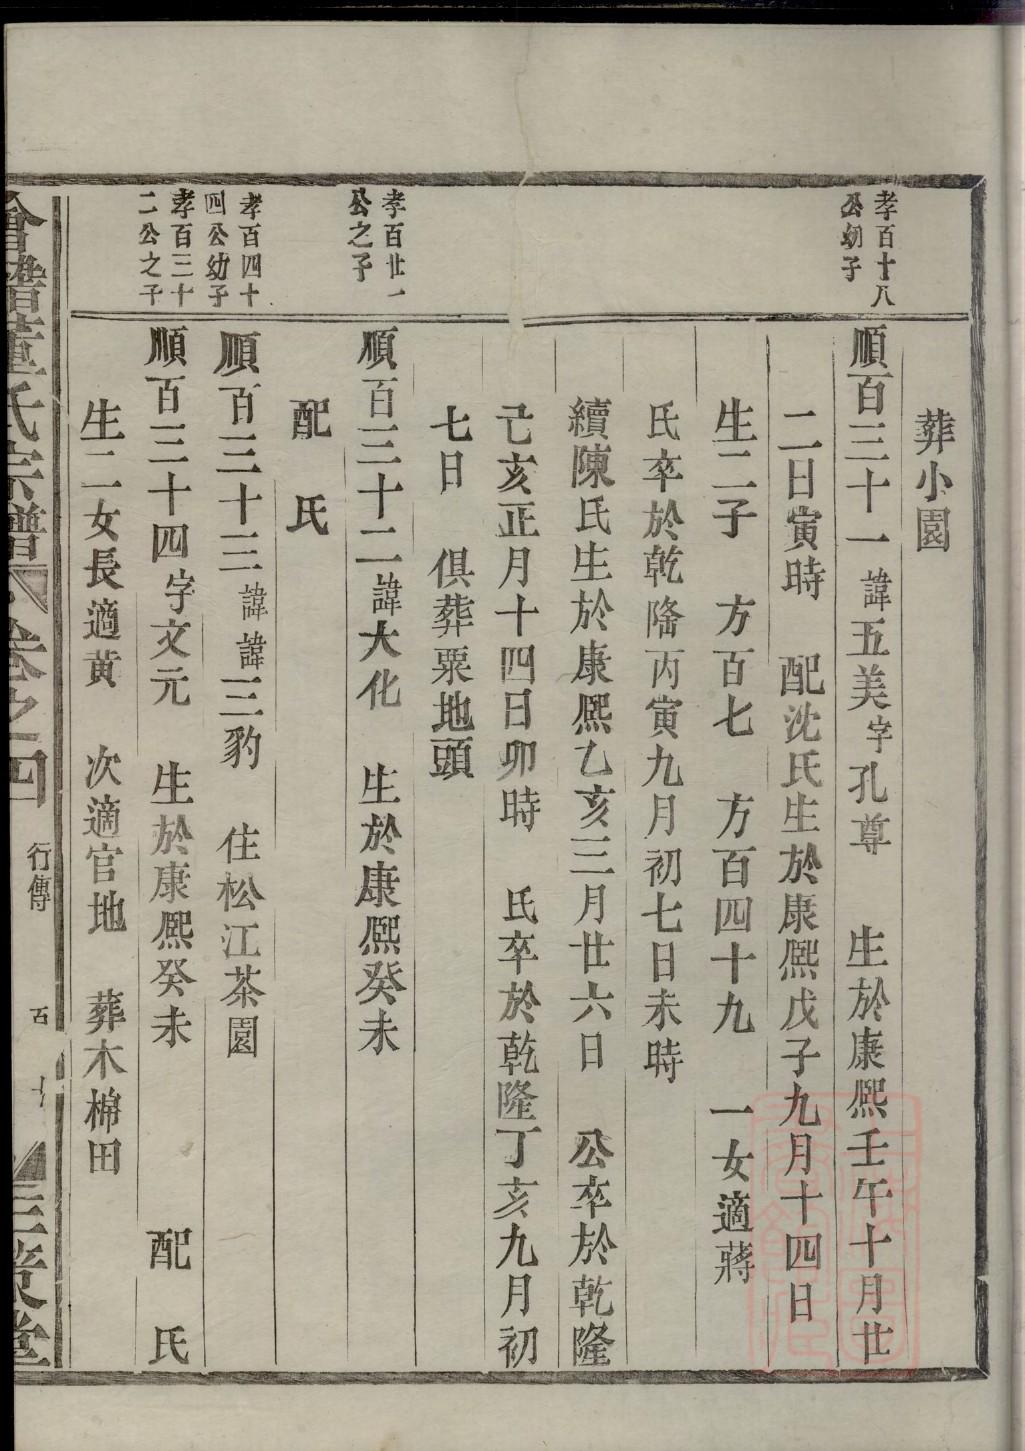 葬小園
孝百十八
公幼子
順百三十一諱五美字孔尊 生於康熙壬午十月廿
二日寅時 配沈氏生於康熙戊子九月十四日
生二子 方百七 方百四十九 一女適蔣
氏卒於乾隆丙寅九月初七日未時
續陳氏生於康熙乙亥三月廿六日 公卒於乾隆
己亥正月十四日卯時 氏卒於乾隆丁亥九月初
七日 俱葬粟地頭
孝百廿一
公之子
順百三十二諱大化 生於康熙癸未
配 氏
孝百四十
四公幼子
順百三十三諱諱三豹 住松江茶園
孝百三十
二公之子
順百三十四字文元 生於康熙癸未 配 氏
生二女長適黃 次適官地 葬木棉田
會稽董氏宗譜 卷之四 行傳 三策堂